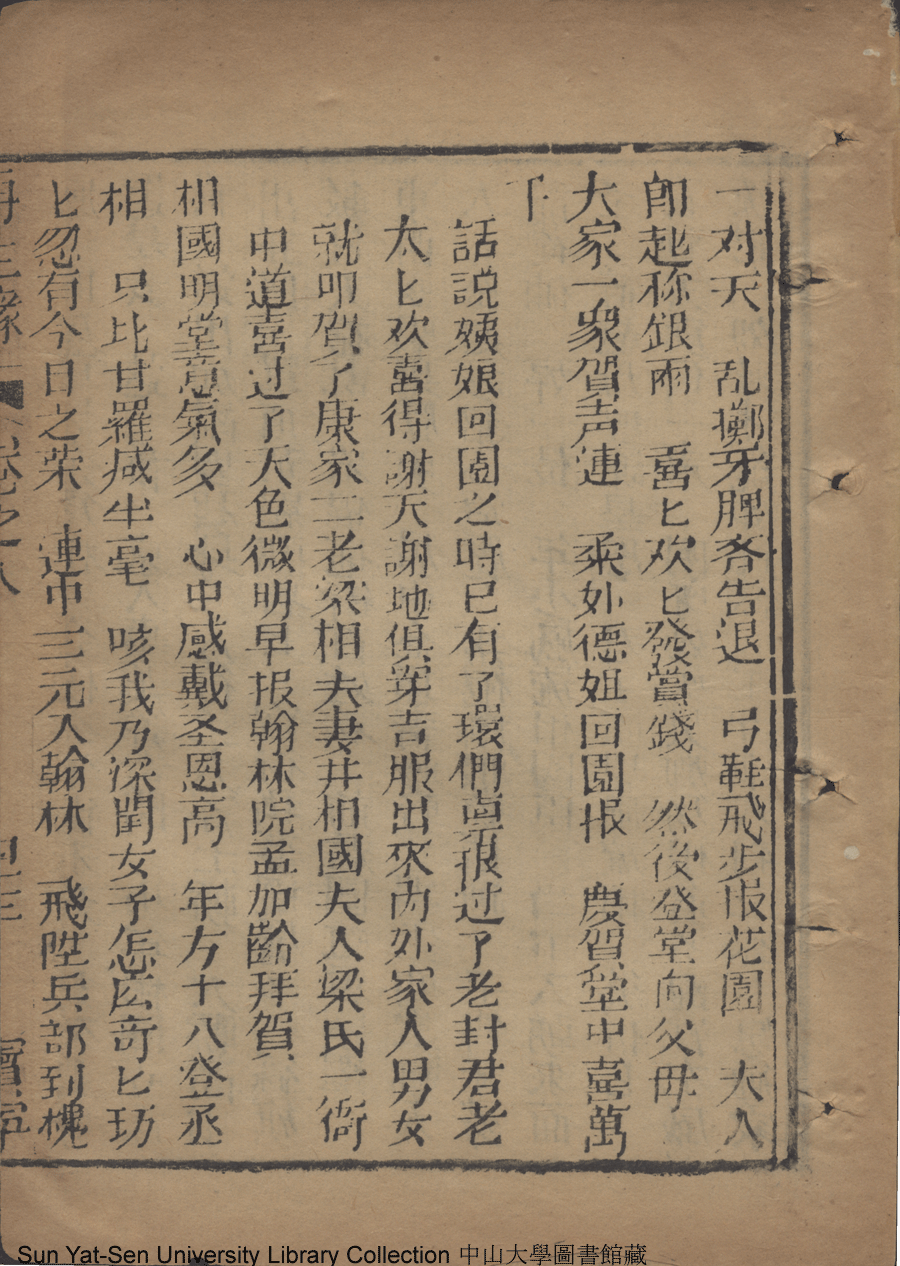 一对天　乱擲牙牌各告退　弓鞋飛步报花園　夫人
即起称銀兩　喜匕欢匕發賞錢　然後登堂向父母
大家一衆贺声連　柔外德姐回園报　慶贺堂中喜萬
千
話説姨娘回園之時已有了環們稟报过了老封君老
太匕欢喜得謝天謝地俱穿吉服出來内外家人男女
就叩贺了康家二老梁相夫妻并相國夫人梁氏一衙
中道喜过了天色微明早报翰林院孟加齡拜賀
相國明堂意氣多　心中感戴圣恩高　年方十八登丞
相　只比甘羅减半毫　咳我乃深閨女子怎広奇匕巧
匕忽有今日之荣　連中三元入翰林　飛陞兵部到槐
再生緣　卷之八　四三　寳寧
Sun Yat-Sen University Library Collection 中山大學圖書館藏